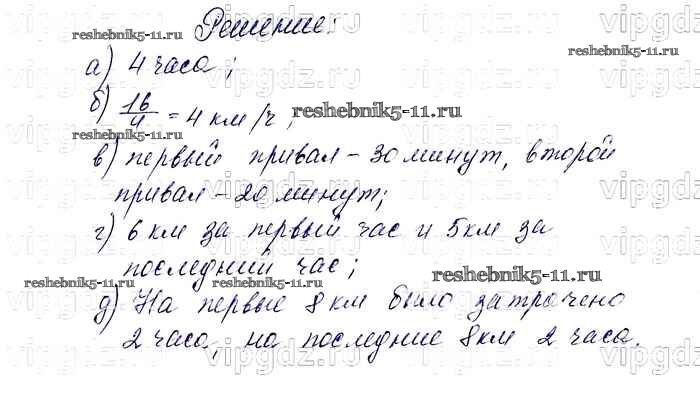 Решение:
reshebnik5-11.ru
reshebnik5-11.ru
а) 4 часа;
б) 16/4 = 4 км/ч;
reshebnik5-11.ru
reshebnik5-11.ru
в) первый привал – 30 минут, второй
привал – 20 минут;
г) 6 км за первый час и 5 км за
последний час;
reshebnik5-11.ru
reshebnik5-11.ru
д) На первые 8 км было затрачено
2 часа, на последние 8 км 2 часа.
vipgdz.ru